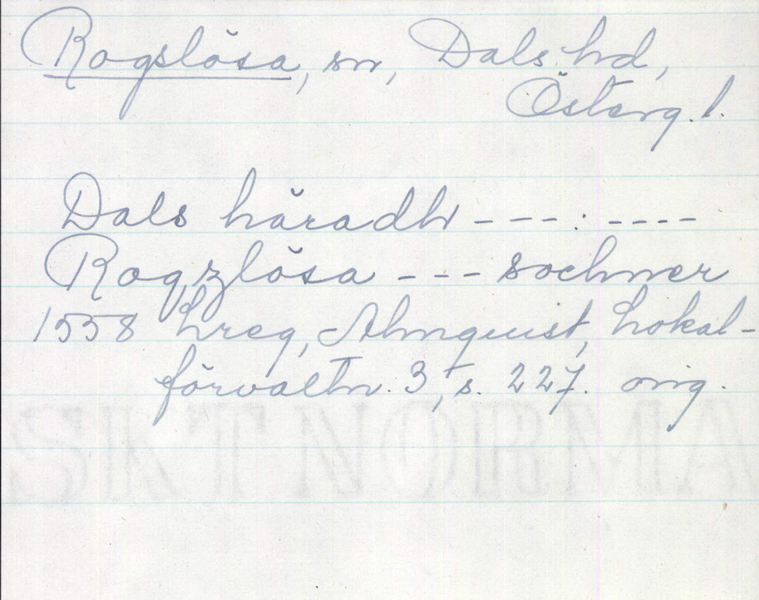 Rogslösa, sn, Dals hd,
Österg. l.
Dals häradh ---:----
Rogzlösa --- sochner
1558 Lreg, Almquist, Lokal-
förvaltn. 3, s. 227. orig.